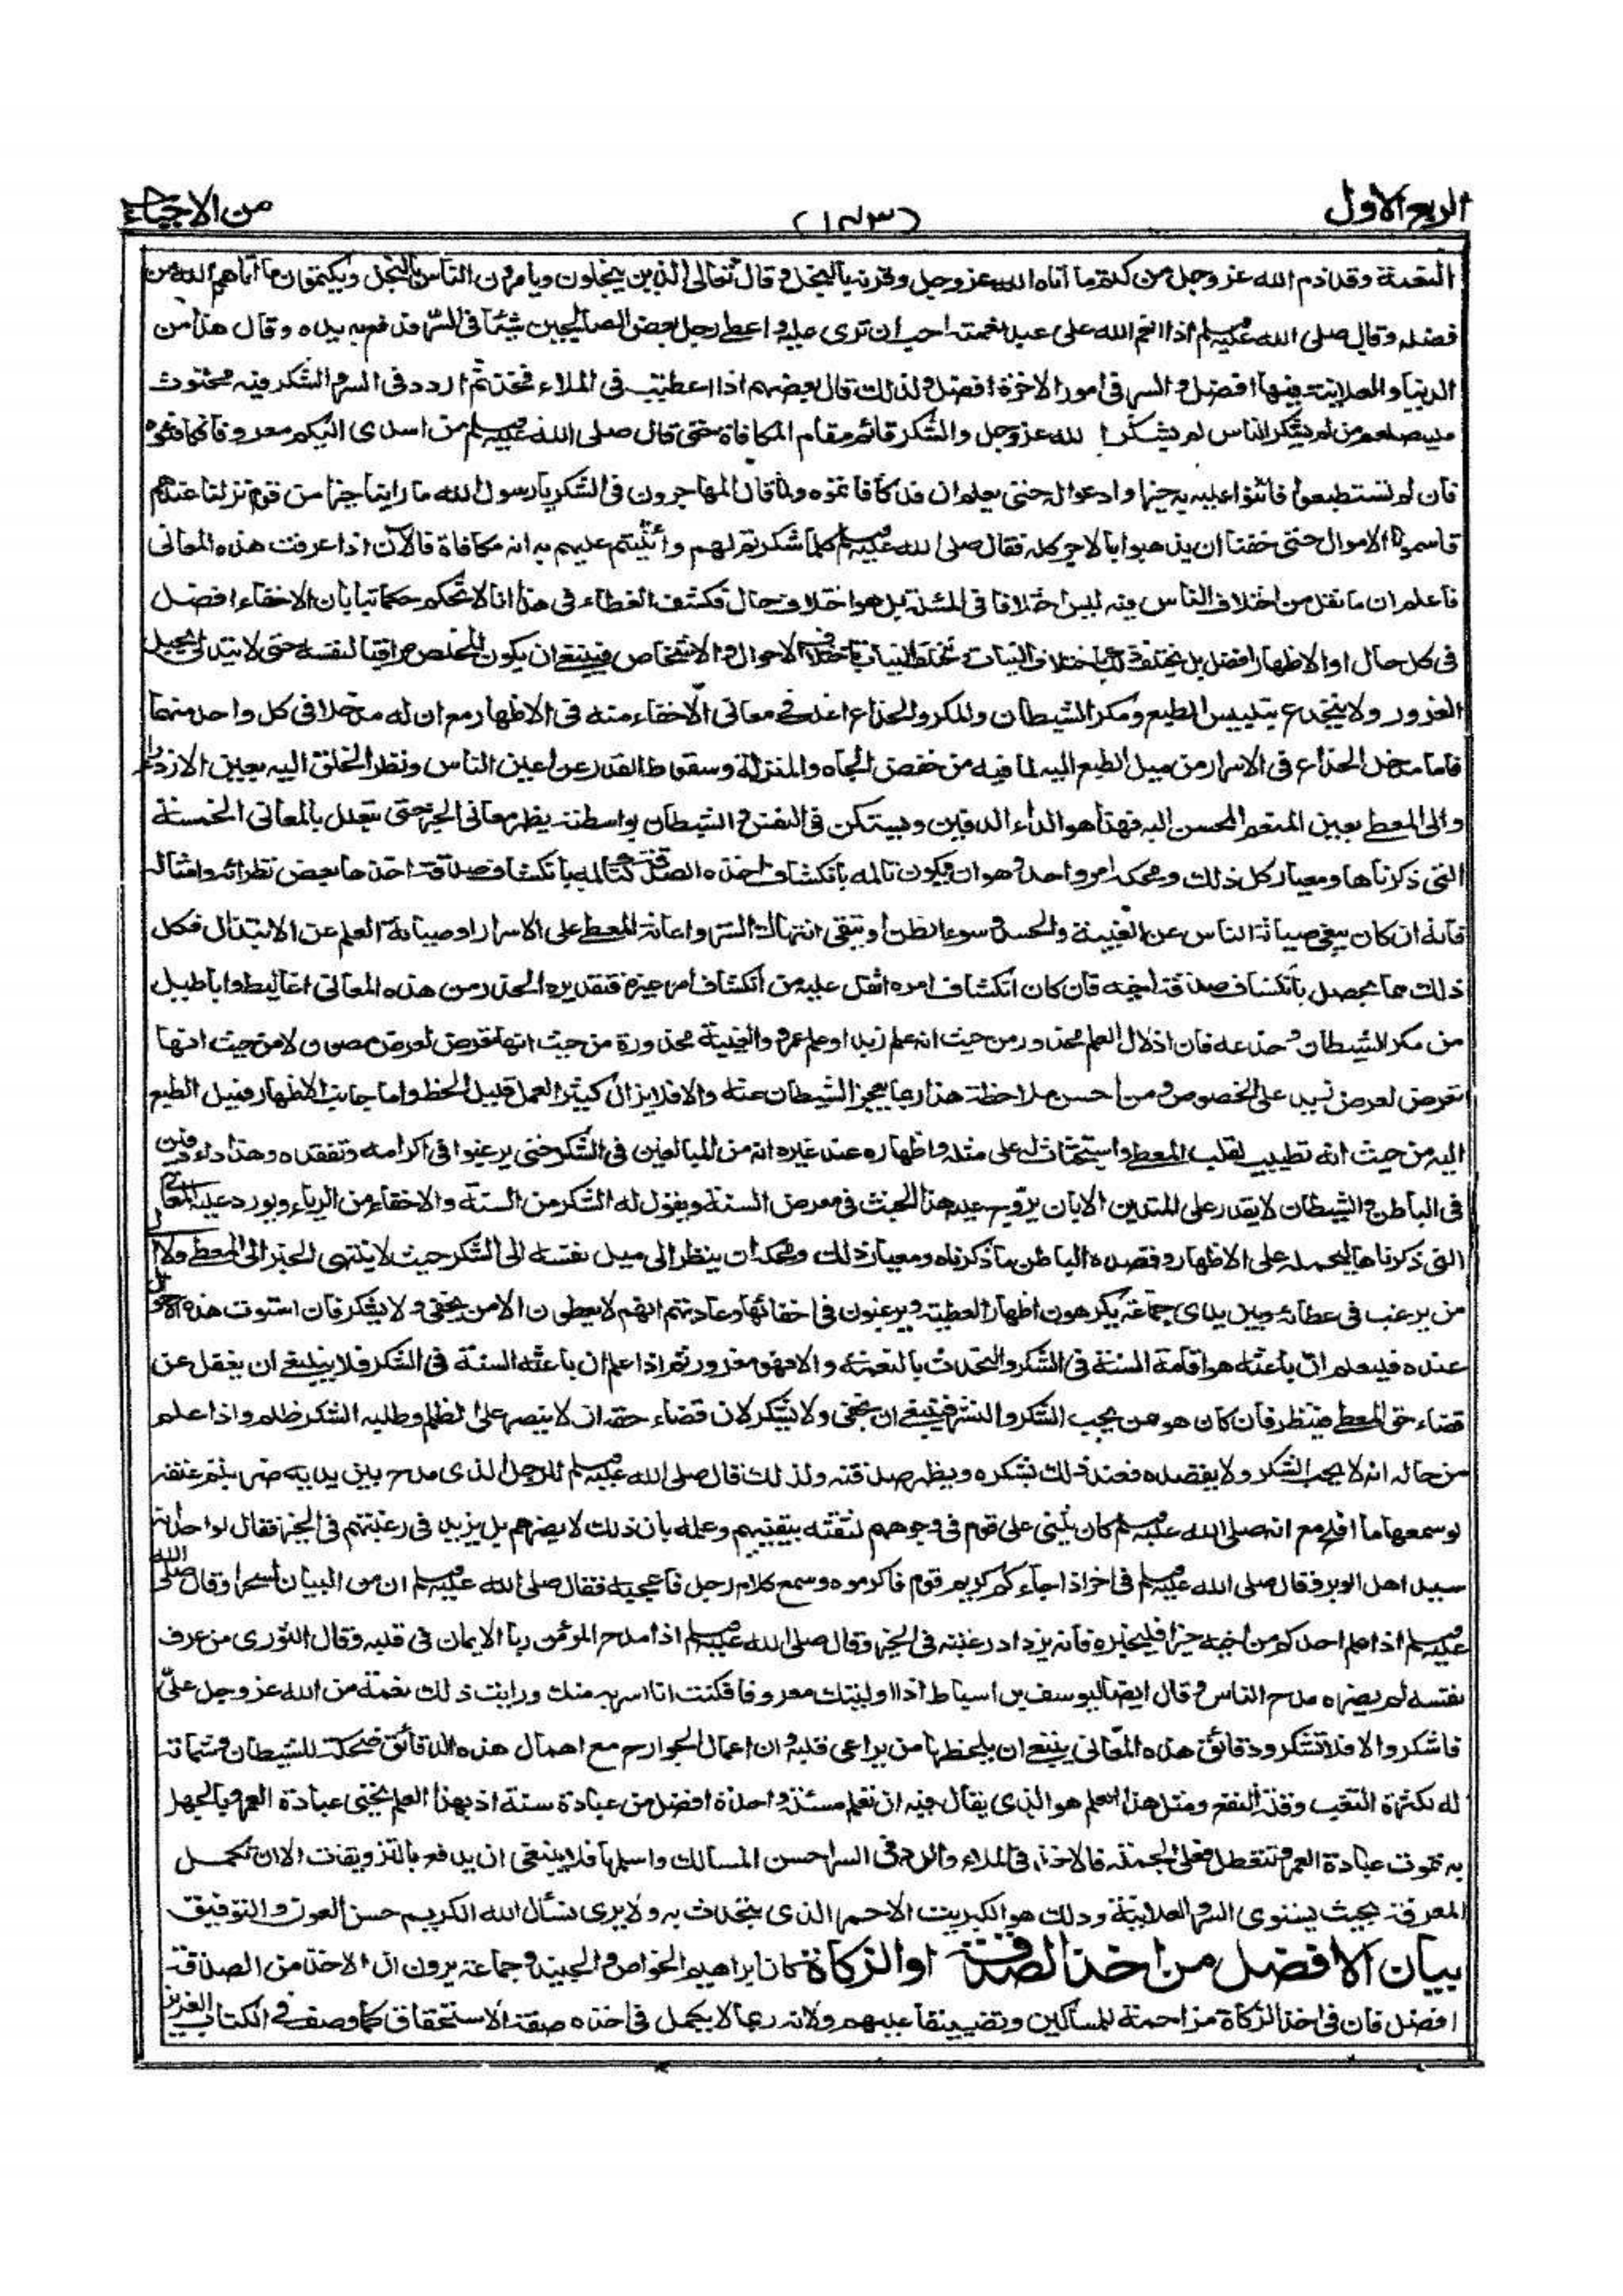 الربع الاول
(١٨٣)
من الاحياء
النعمة وقد ذم الله عز وجل من كتم ما اتاه الله عز وجل وقرنه بالبخل وقال تعالى الذين يبخلون ويامرون الناس بالبخل ويكتمون ما اتاهم الله من
فضله وقال صلى الله عليه وسلم اذا انعم الله على عبد نعمة احب ان ترى عليه واعطى رجل بعض الصالحين شيئا في السر فدفع به يده وقال هذا من
الدنيا والعلانية فيها افضل والسر في امور الاخرة افضل ولذلك قال بعضهم اذا اعطيت في الملاء فخذ ثم اردد في السر والشكر فيه محثوث
عليه صلعم من لم يشكر الناس لم يشكر الله عز وجل والشكر قائم مقام المكافاة حتى قال صلى الله عليه وسلم من اسدى اليكم معروفا فكافئوه
فان لم تستطيعوا فاثنوا عليه به خيرا وادعوا له حتى يعلم ان قد كافاتموه ولما قال المهاجرون في الشكر يا رسول الله ما راينا خيرا من قوم نزلنا عندهم
قاسمونا الاموال حتى خفنا ان يذهبوا بالاجر كله فقال صلى الله عليه وسلم كلما شكرتم لهم واثنيتم عليهم به انه مكافاة فالان اذا عرفت هذه المعاني
فاعلم ان ما نقل من اختلاف الناس فيه ليس اختلافا في المسئلة بل هو اختلاف حال فكشف الغطاء في هذا انا لا نحكم حكما بتا بان الاخفاء افضل
في كل حال او الاظهار افضل بل يختلف ذلك باختلاف النيات وتختلف النيات باختلاف الاحوال والاشخاص فينبغي ان يكون المخلص مراقبا لنفسه حتى لا يتدلى بحبل
الغرور ولا ينخدع بتلبيس الطبع ومكر الشيطان والمكر والخداع اغلب في معاني الاخفاء منه في الاظهار مع ان له مدخلا في كل واحد منهما
فاما مدخل الخداع في الاسرار من ميل الطبع اليه لما فيه من خفض الجاه والمنزلة وسقوط القدر عن اعين الناس ونظر الخلق اليه بعين الازدراء
والى المعطى بعين المنعم المحسن اليه فهذا هو الداء الدفين ويستكن في النفس والشيطان بواسطته يظهر معاني الخير حتى يتعلل بالمعاني الخمسة
التي ذكرناها ومعيار كل ذلك ومحكه امر واحد وهو ان يكون تالمه بانكشاف اخذه الصدقة كتالمه بانكشاف صدقة اخذها بعض نظرائه وامثاله
فانه ان كان يبغي صيانة الناس عن الغيبة والحسد وسوء الظن او يتقي انتهاك الستر او اعانة المعطى على الاسرار او صيانة العلم عن الابتذال فكل
ذلك مما يحصل بانكشاف صدقة اخيه فان كان انكشاف امره اثقل عليه من انكشاف امر غيره فتقديره الحذر من هذه المعاني اغاليط واباطيل
من مكر الشيطان وخدعه فان اذلال العلم محذور من حيث انه علم زيد او علم عمرو والغيبة محذورة من حيث انها تعرض لعرض مصون ولا من حيث انها
تعرض لعرض زيد على الخصوص ومن احسن ملاحظة هذا ربما يعجز الشيطان عنه والا فلا يزال كثير العمل قليل الحظ واما جانب الاظهار فميل الطبع
اليه من حيث انه تطييب لقلب المعطى واستحثاث له على مثله واظهاره عند غيره انه من المبالغين في الشكر حتى يرغبوا في اكرامه وتفقده وهذا داء دفين
في الباطن والشيطان لا يقدر على المتدين الا بان يروج عليه هذا الخبث في معرض السنة ويقول له الشكر من السنة والاخفاء من الرياء ويورد عليه المعاني
التي ذكرناها ليحمله على الاظهار وقصده الباطن ما ذكرناه ومعيار ذلك ومحكه ان ينظر الى ميل نفسه الى الشكر حيث لا ينتهي الخبر الى المعطى ولا الى
من يرغب في عطائه وبين يدي جماعة يكرهون اظهار العطية ويرغبون في اخفائها وعادتهم انهم لا يعطون الا من يخفي ولا يشكر فان استوت هذه الاحوال
عنده فليعلم ان باعثه هو اقامة السنة في الشكر والتحدث بالنعمة والا فهو مغرور ثم اذا علم ان باعثه السنة في الشكر فلا ينبغي ان يغفل عن
قضاء حق المعطى فينظر فان كان هو ممن يحب الشكر والنشر فينبغي ان يخفي ولا يشكر لان قضاء حقه ان لا ينصره على الظلم وطلبه الشكر ظلم واذا علم
من حاله انه لا يحب الشكر ولا يقصده فعند ذلك يشكره ويظهر صدقته ولذلك قال صلى الله عليه وسلم للرجل الذي مدح بين يديه ضربتم عنقه
لو سمعها ما افلح مع انه صلى الله عليه وسلم كان يثني على قوم في وجوههم لثقته بيقينهم وعلمه بان ذلك لا يضرهم بل يزيد في رغبتهم في الخير فقال لواحد انه
سيد اهل الوبر وقال صلى الله عليه وسلم في اخر اذا جاءكم كريم قوم فاكرموه وسمع كلام رجل فاعجبه فقال صلى الله عليه وسلم ان من البيان لسحرا وقال صلى الله
عليه وسلم اذا علم احدكم من اخيه خيرا فليخبره فانه يزداد رغبة في الخير وقال صلى الله عليه وسلم اذا مدح المؤمن ربا الايمان في قلبه وقال الثوري من عرف
نفسه لم يضره مدح الناس وقال ايضا ليوسف بن اسباط اذا اوليتك معروفا فكنت انا اسر به منك ورايت ذلك نعمة من الله عز وجل علي
فاشكر والا فلا تشكر ودقائق هذه المعاني ينبغي ان يلحظها من يراعي قلبه وان اعمال الجوارح مع اهمال هذه الدقائق ضحكة للشيطان وشماتة
له لكثرة التعب وقلة النفع ومثل هذا العلم هو الذي يقال فيه ان تعلم مسئلة واحدة افضل من عبادة سنة اذ بهذا العلم تحيى عبادة العمر وبالجهل
به تموت عبادة العمر وتتعطل وعلى الجملة فالاخذ في الملاء والرد في السر احسن المسالك واسلمها فلا ينبغي ان يدفع بالتزويقات الا ان تكمل
المعرفة بحيث يستوي السر والعلانية وذلك هو الكبريت الاحمر الذي يتحدث به ولا يرى نسأل الله الكريم حسن العون والتوفيق
بيان الافضل من اخذ الصدقة او الزكاة كان ابراهيم الخواص والجنيد وجماعة يرون ان الاخذ من الصدقة
افضل فان في اخذ الزكاة مزاحمة للمساكين وتضييقا عليهم ولانه ربما لا يكمل في اخذه صفة الاستحقاق كما وصف في الكتاب العزيز